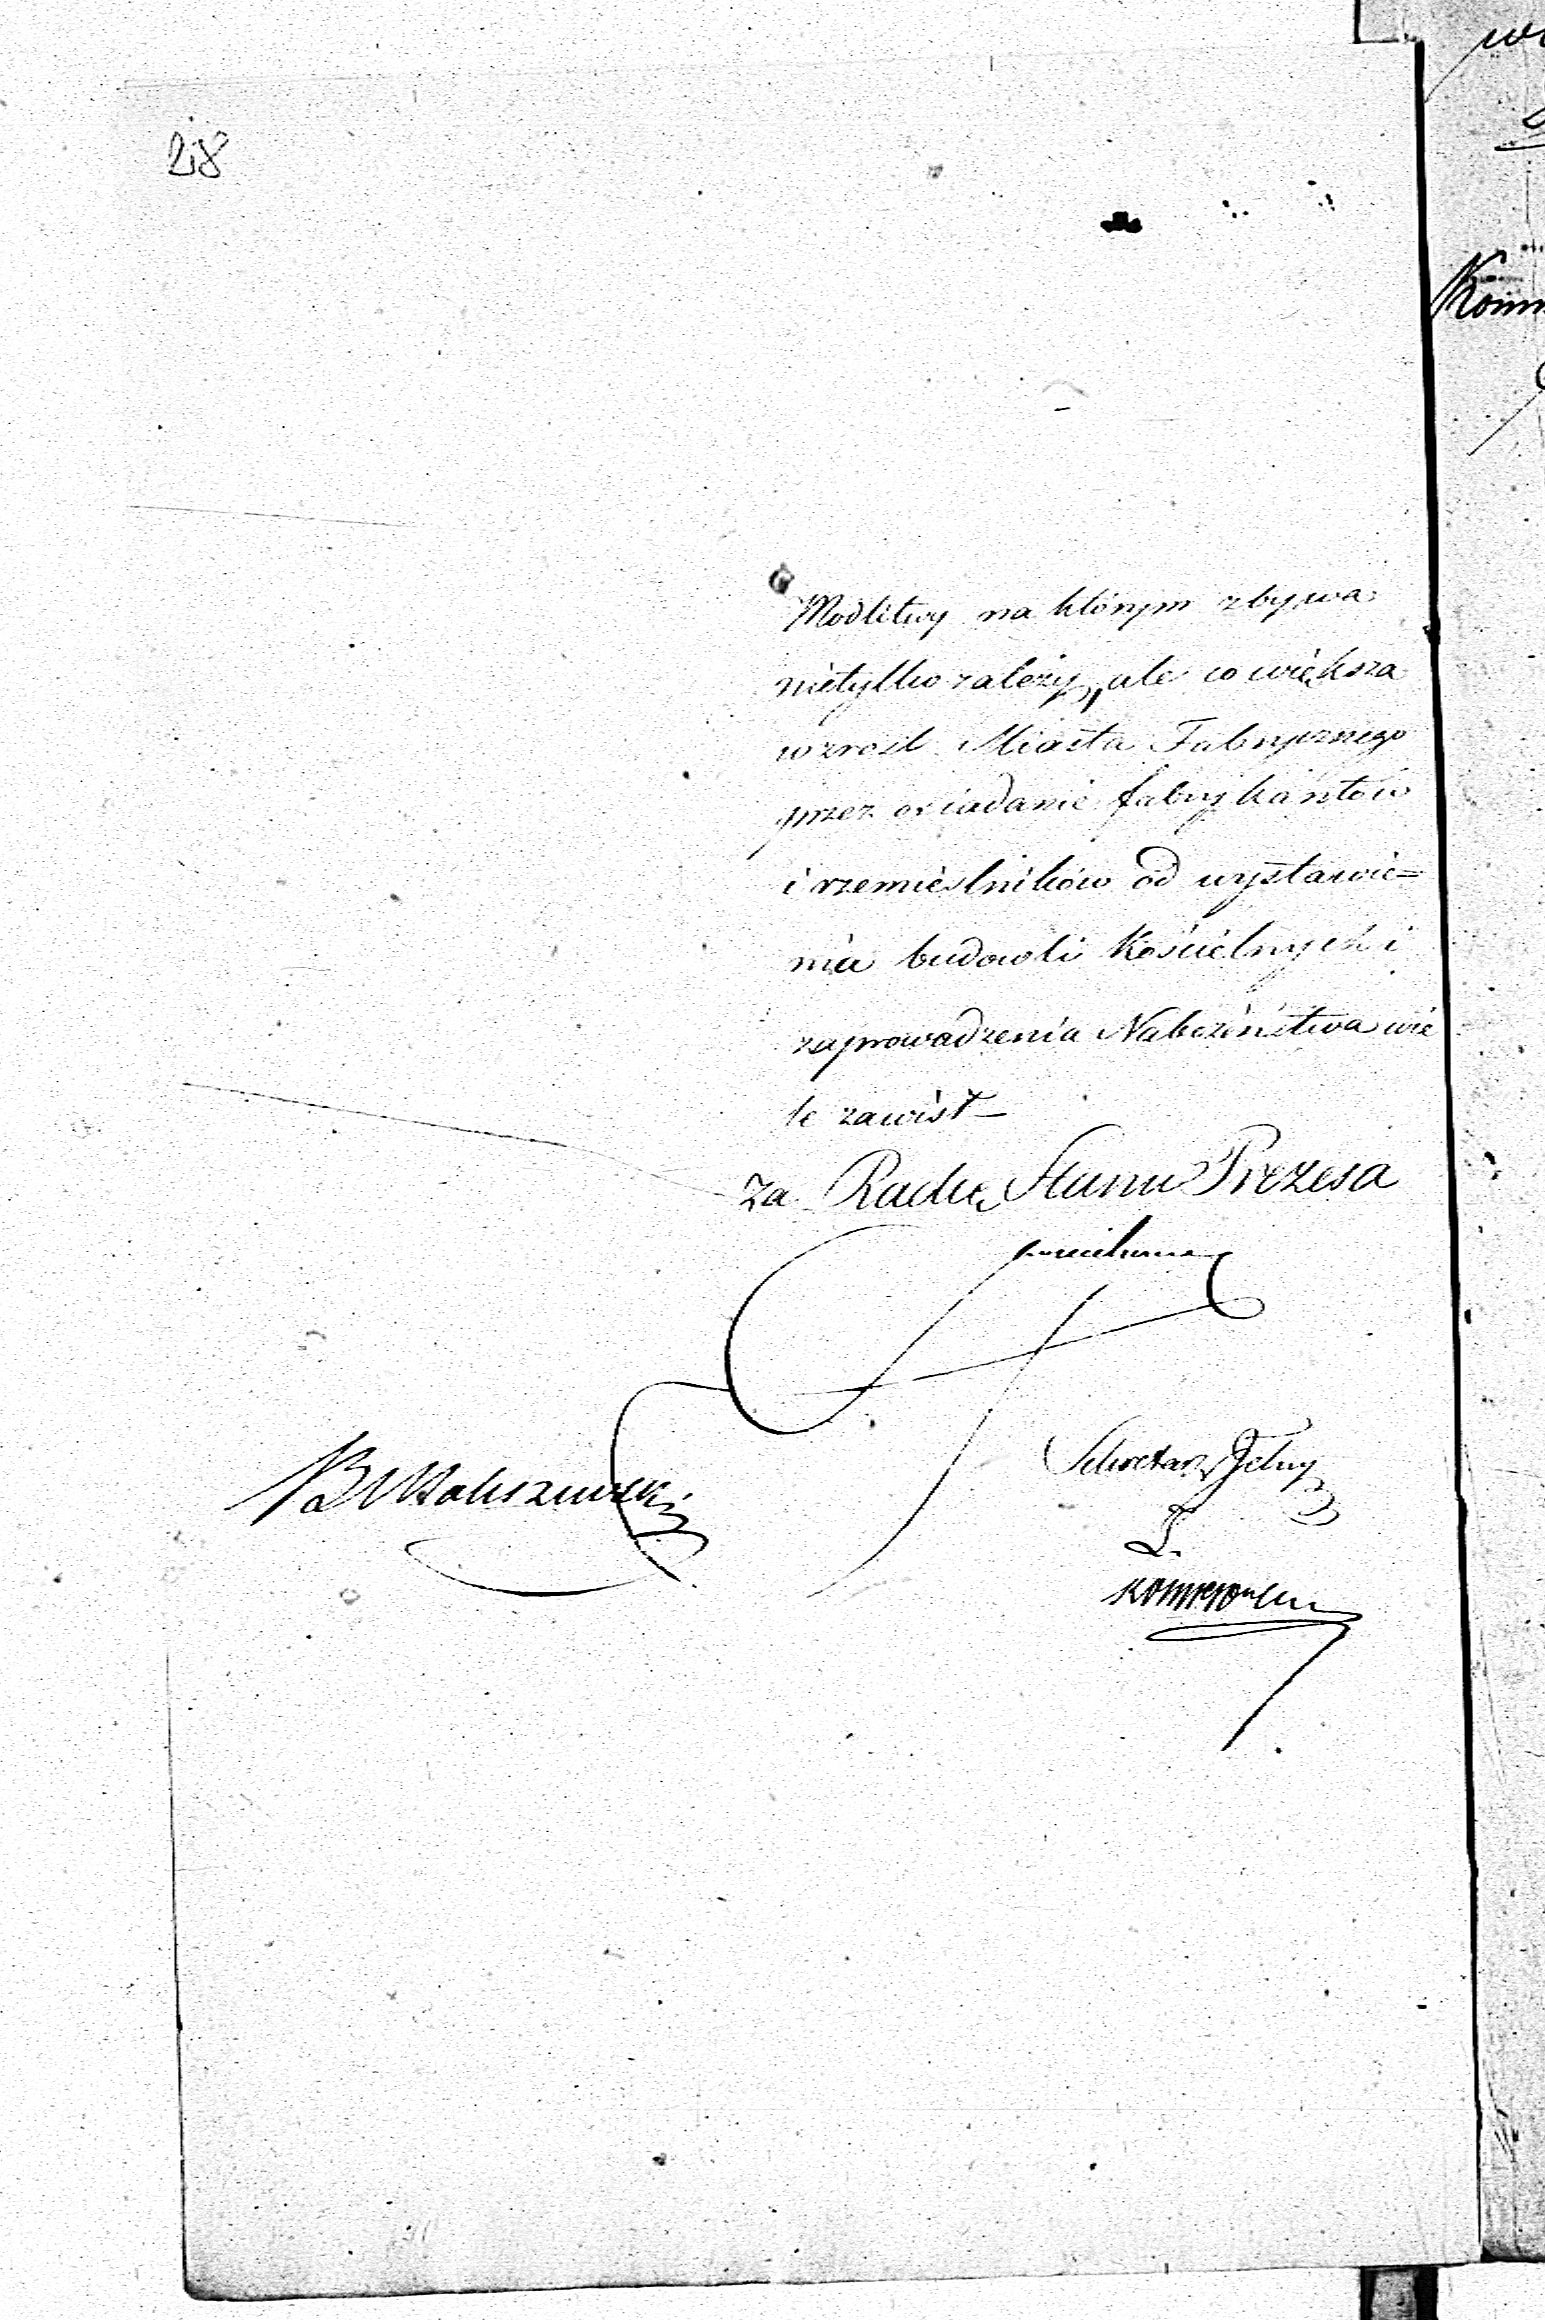 28
Modlitwy na którym zbywa
nietylko zależy, ale co większa
wzrost Miasta Fabrycznego
przez osiadanie fabrykantów
i rzemieślników od wystawie=
nia budowli Kościelnych i
zaprowadzenia Nabożeństwa wie
le zawisł –
Za Radcę Stanu Prezesa
Sekretarz Jelny